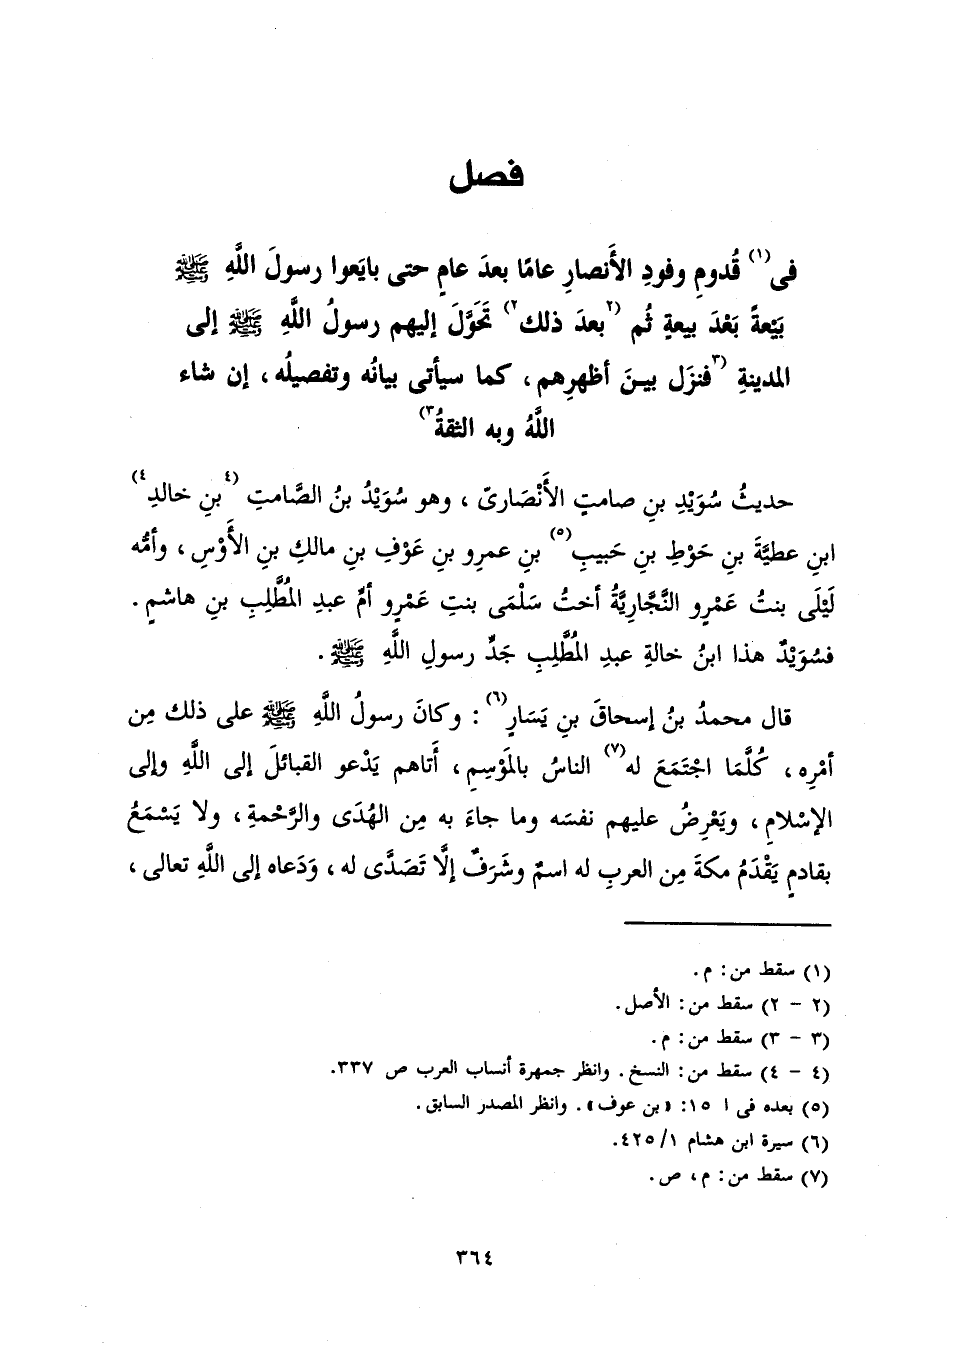 فصل
فى(١) قُدومِ وفودِ الأَنصارِ عامًا بعدَ عامٍ حتى بايَعوا رسولَ اللَّهِ ﷺ
بَيْعةً بَعْدَ بيعةٍ ثُم (٢بعدَ ذلك٢) تَحَوَّلَ إليهم رسولُ اللَّهِ ﷺ إلى
المدينةِ (٣فنزَل بينَ أظهرِهم، كما سيأتى بيانُه وتفصيلُه، إن شاء
اللَّهُ وبه الثقةُ٣)
حديثُ سُوَيْدِ بنِ صامتٍ الأَنْصَارىِّ، وهو سُوَيْدُ بنُ الصَّامتِ (٤بنِ خالدِ٤)
ابنِ عطيَّةَ بنِ حَوْطِ بنِ حَبيبِ(٥) بنِ عمرِو بنِ عَوْفِ بنِ مالكِ بنِ الأَوْسِ، وأمُّه
لَيْلَى بنتُ عَمْرٍو النَّجَّاريَّةُ أختُ سَلْمَى بنتِ عَمْرٍو أمِّ عبدِ المُطَّلِبِ بنِ هاشمٍ.
فسُوَيْدٌ هذا ابنُ خالةِ عبدِ المُطَّلِبِ جَدِّ رسولِ اللَّهِ ﷺ.
قال محمدُ بنُ إسحاقَ بنِ يَسَارٍ(٦): وكانَ رسولُ اللَّهِ ﷺ على ذلك مِن
أمْرِه، كُلَّمَا اجْتَمَعَ له(٧) الناسُ بالمَوْسِمِ، أَتاهم يَدْعو القبائلَ إلى اللَّهِ وإلى
الإسْلامِ، ويَعْرِضُ عليهم نفسَه وما جاءَ به مِن الهُدَى والرَّحْمةِ، ولا يَسْمَعُ
بقادمٍ يَقْدَمُ مكةَ مِن العربِ له اسمٌ وشَرَفٌ إلَّا تَصَدَّى له، وَدَعاه إلى اللَّهِ تعالى،
(١) سقط من: م.
(٢ - ٢) سقط من: الأصل.
(٣ - ٣) سقط من: م.
(٤ - ٤) سقط من: النسخ. وانظر جمهرة أنساب العرب ص ٣٣٧.
(٥) بعده فى ا ١٥: «بن عوف». وانظر المصدر السابق.
(٦) سيرة ابن هشام ١/ ٤٢٥.
(٧) سقط من: م، ص.
٣٦٤